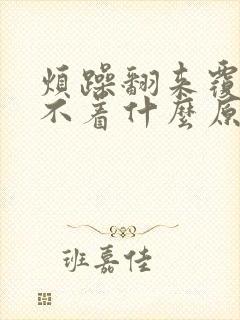 煩躁翻来覆
不着什麼原
班嘉佳